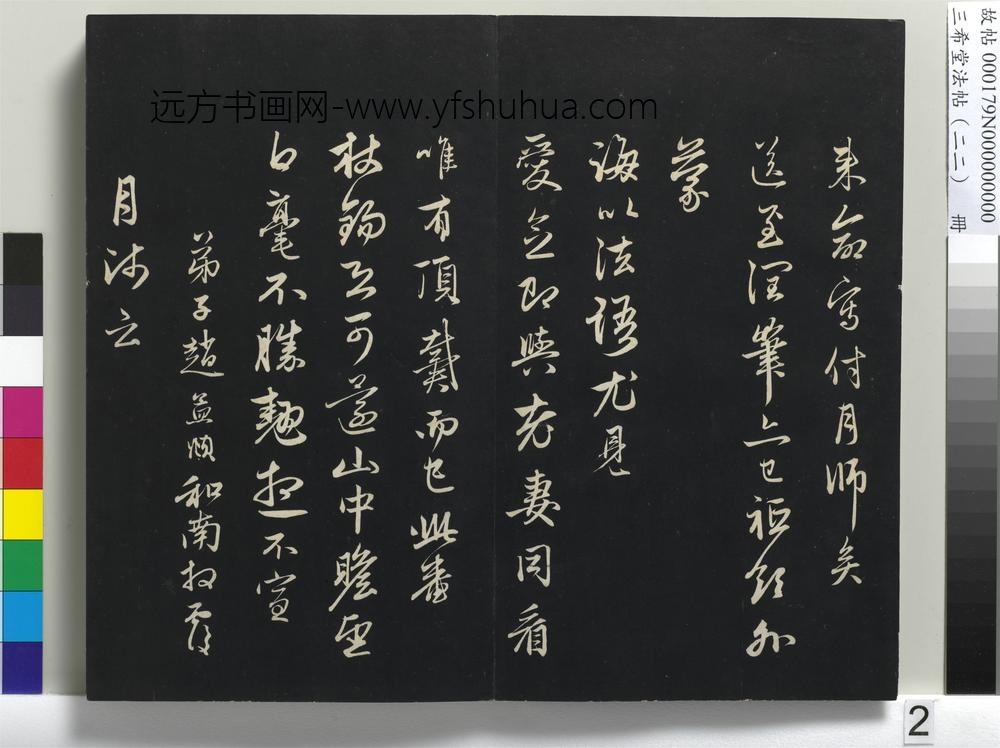 来命写付月师矣
送至润笔亦已祗领外
蒙
诲以法语尤见
爱之即与老妻同看
唯有頂戴而已此番
杖錫又可還山中瞻望
白毫不勝翹想不宣
弟子趙孟頫和南拜覆
月师云
远方书画网-www.yfshuhua.com
故帖 000179N000000000
三希堂法帖(二二) 册
2